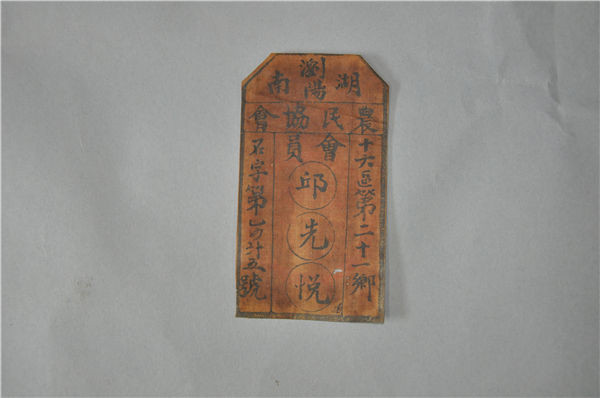 湖南
瀏陽
農民協會
會員
十六區第二十一鄉
邱先悦
石字第廿五號